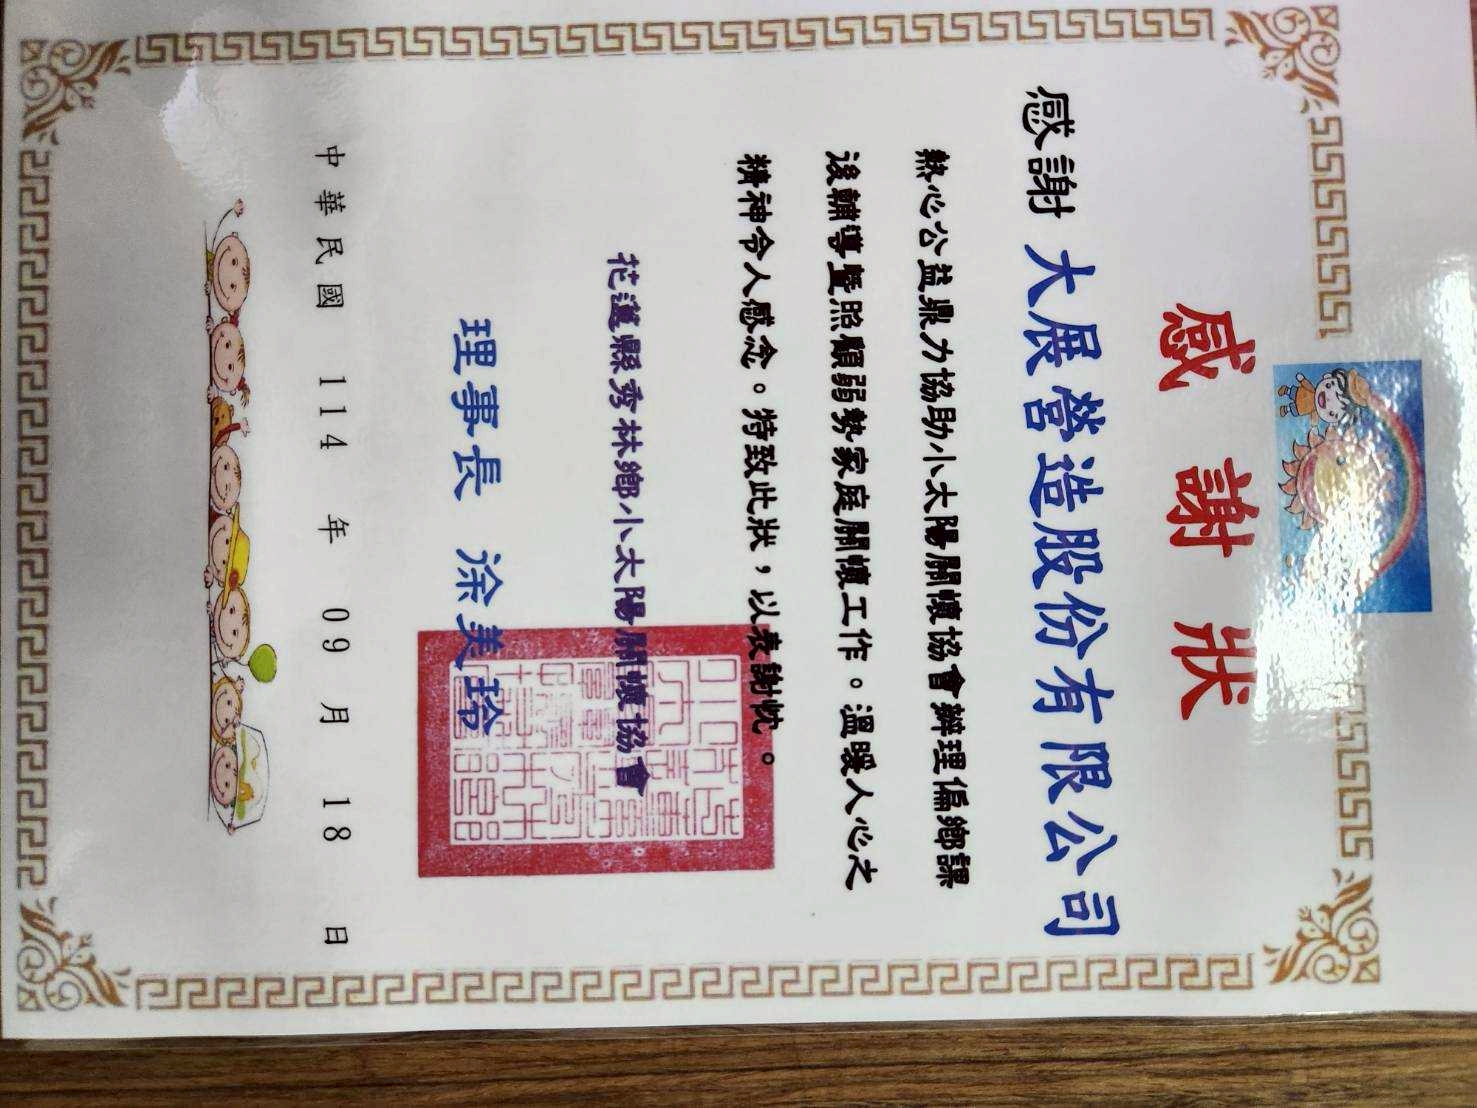 感謝狀
感謝 大展營造股份有限公司
熱心公益鼎力協助小太陽關懷協會辦理偏鄉課
後輔導暨照顧弱勢家庭關懷工作。溫暖人心之
精神令人感念。特致此狀，以表謝忱。
花蓮縣秀林鄉小太陽關懷協會
理事長 涂美玲
中華民國 114 年 09 月 18 日